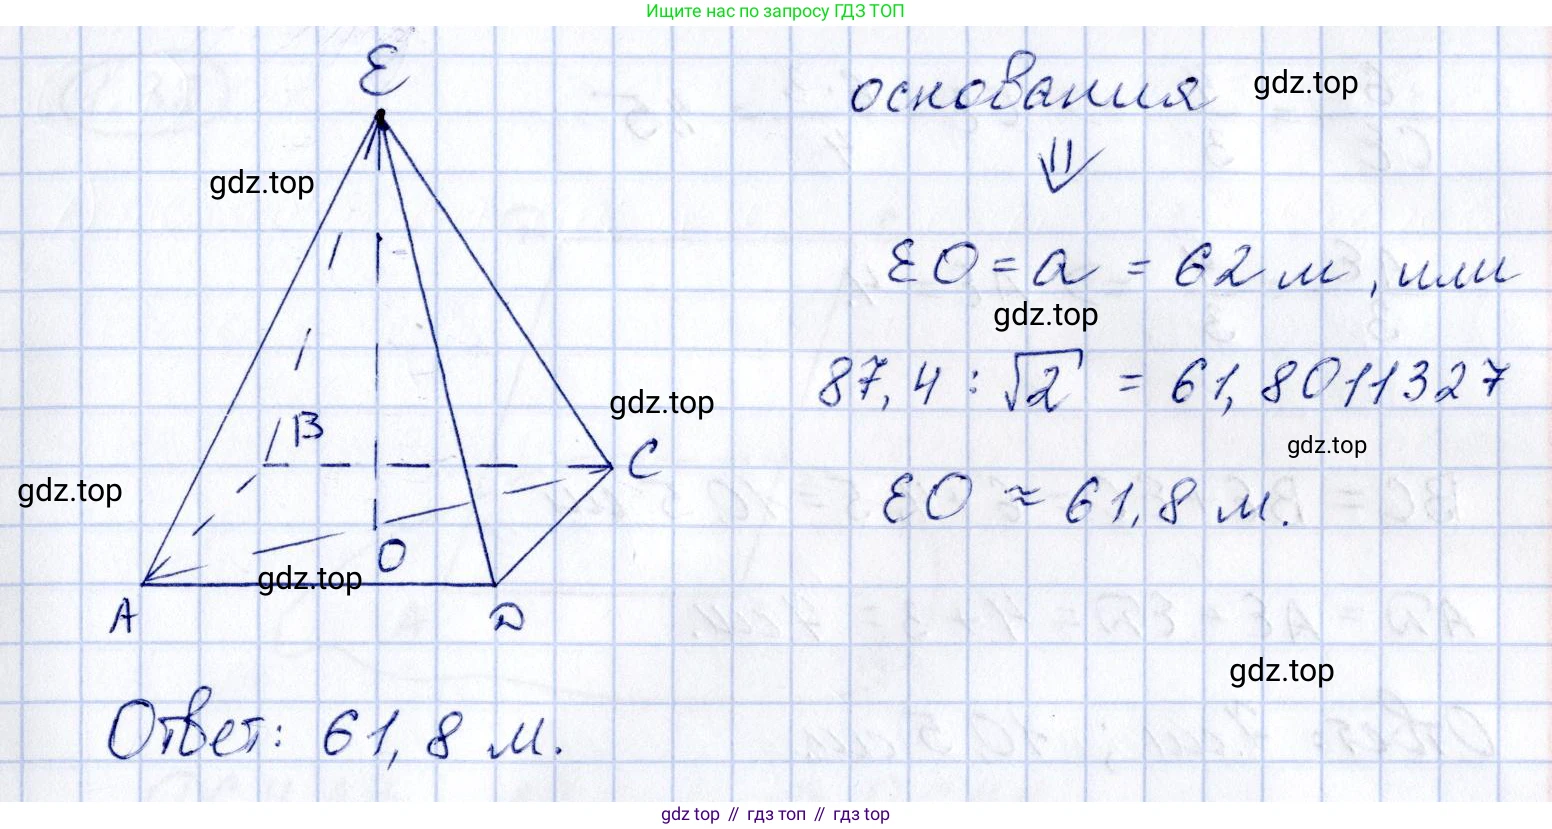 Ищите нас по запросу ГДЗ ТОП
E
основания
gdz.top
⇓
gdz.top
EO = a = 62 м, или
gdz.top
87,4 : √2 = 61,8011327
gdz.top
B
gdz.top
C
gdz.top
EO ≈ 61,8 м.
O
gdz.top
A
D
gdz.top
Ответ: 61,8 м.
gdz.top // гдз топ // гдз top